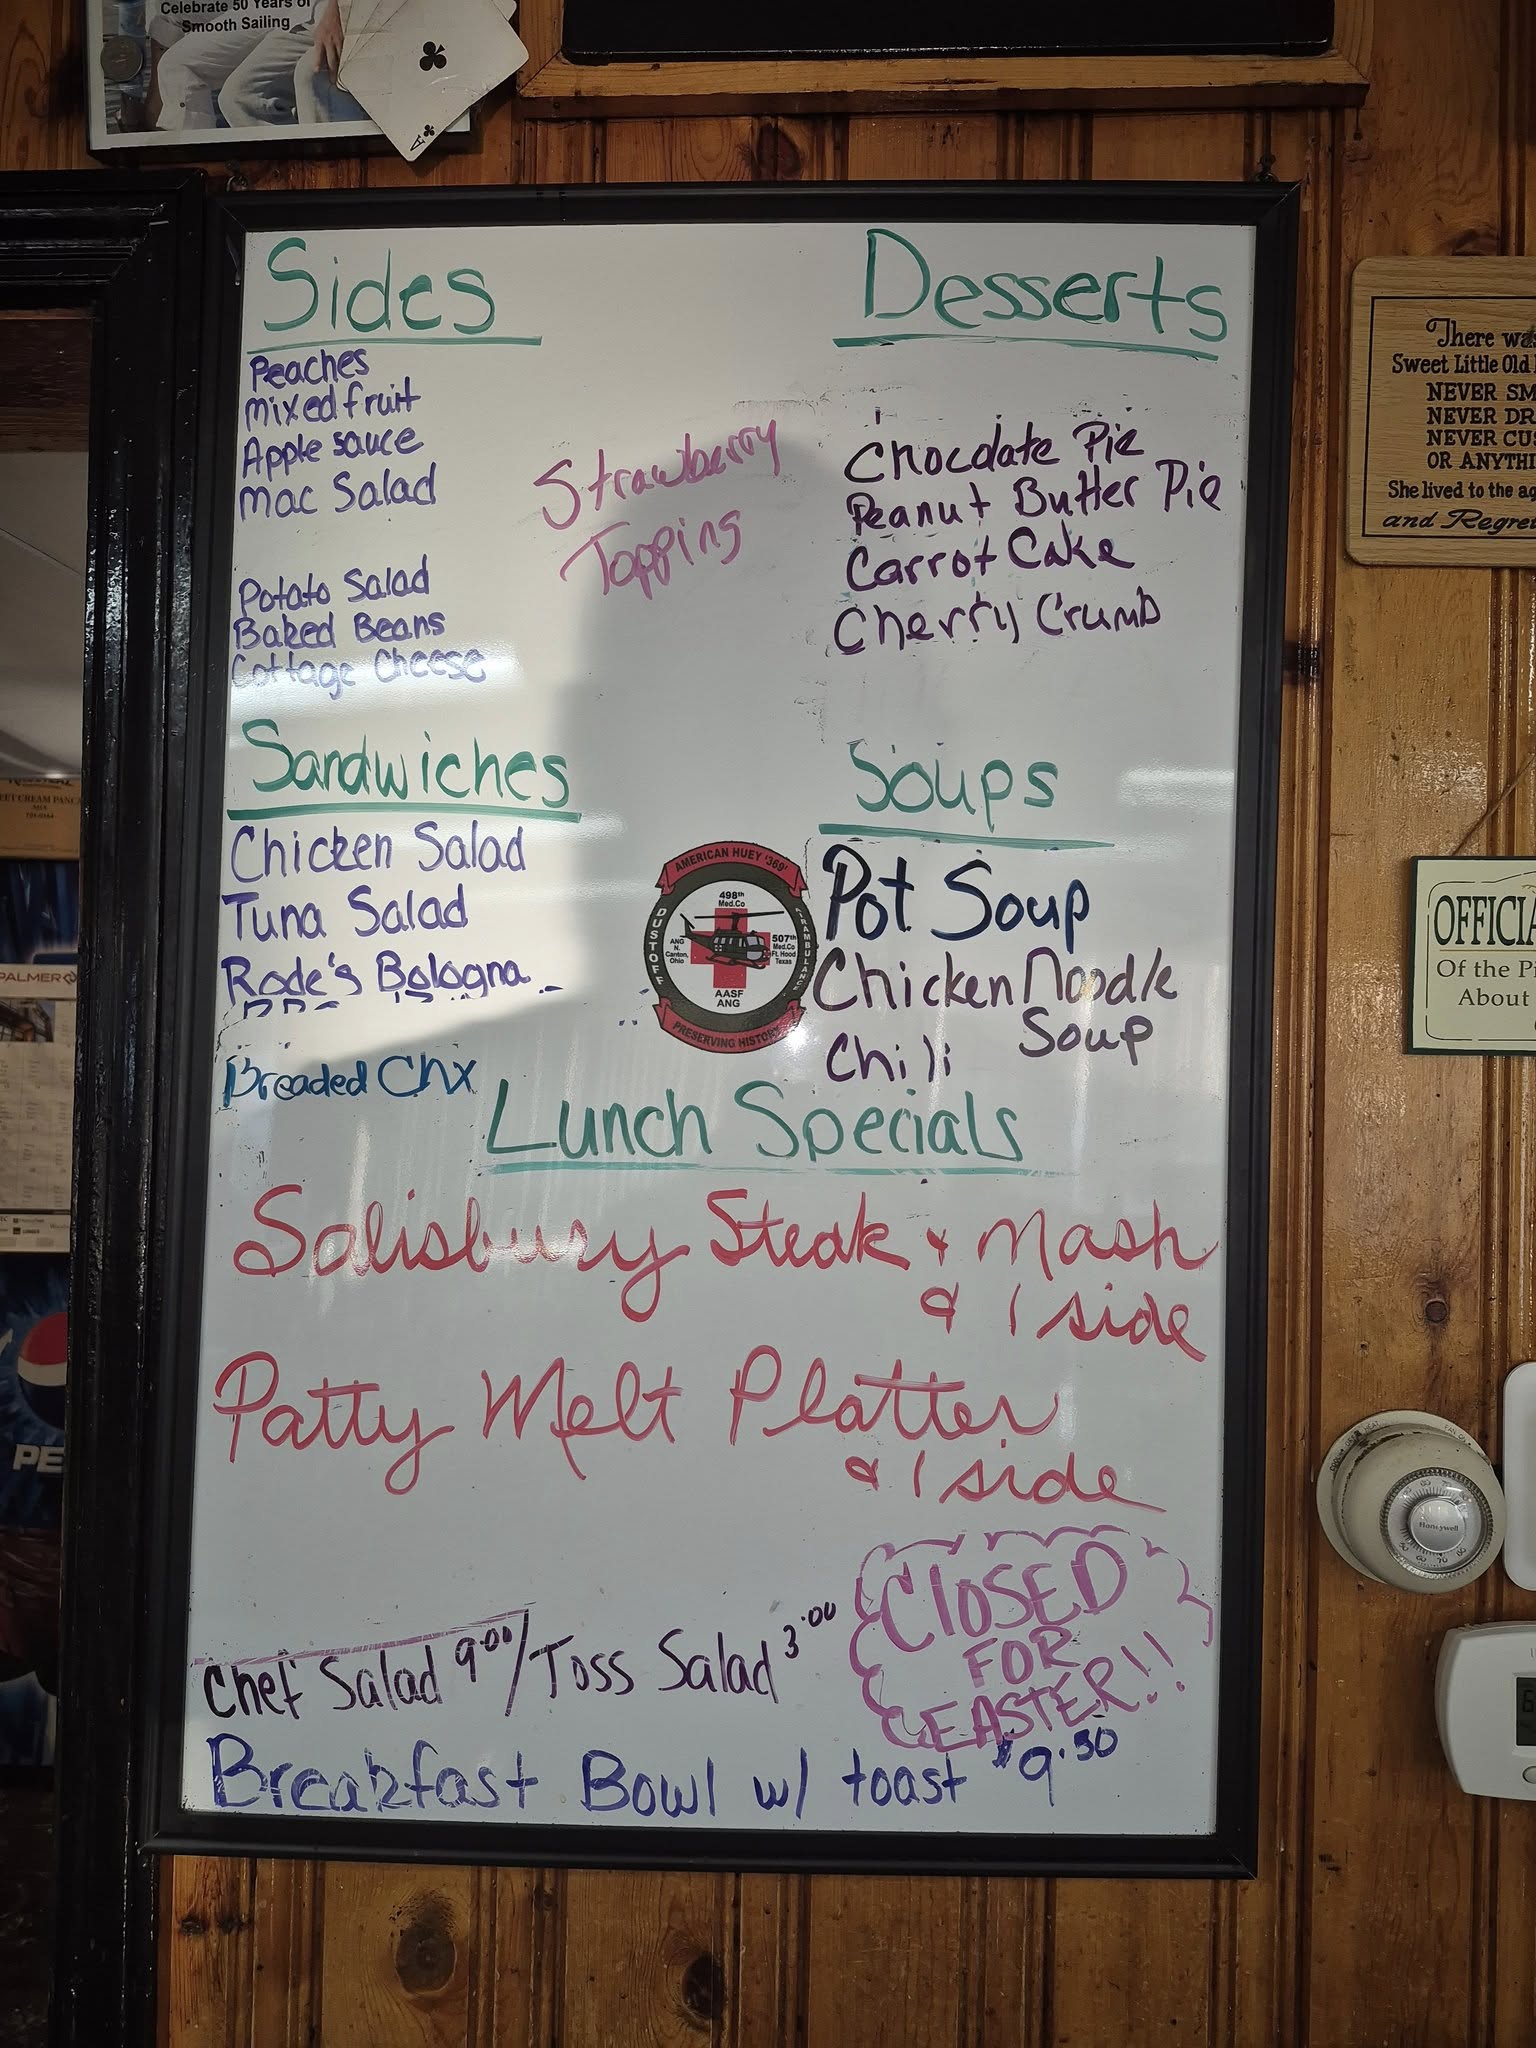 Celebrate 50 Years of
Smooth Sailing
A
Sides
Peaches
Mixed fruit
Apple sauce
Mac Salad
Potato Salad
Baked Beans
Cottage Cheese
Strawberry
Topping
Desserts
Chocolate Pie
Peanut Butter Pie
Carrot Cake
Cherry Crumb
Sandwiches
Chicken Salad
Tuna Salad
Rode's Bologna
Breaded Chx
AMERICAN HUEY '369'
DUSTOFF
AIRAMBULANCE
498th
Med.Co
ANG
N.
Canton,
Ohio
507th
Med.Co
Ft. Hood
Texas
AASF
ANG
PRESERVING HISTORY
Soups
Pot Soup
Chicken Noodle
Soup
Chili
Lunch Specials
Salisbury Steak & Mash
& 1 side
Patty Melt Platter
& 1 side
Chef Salad 9.00 / Toss Salad 3.00
CLOSED
FOR
EASTER!!
Breakfast Bowl w/ toast $9.50
There was
Sweet Little Old
NEVER SM
NEVER DR
NEVER CUS
OR ANYTHI
She lived to the ag
and Regre
OFFICIA
Of the Pi
About
Honeywell
PALMER
PE